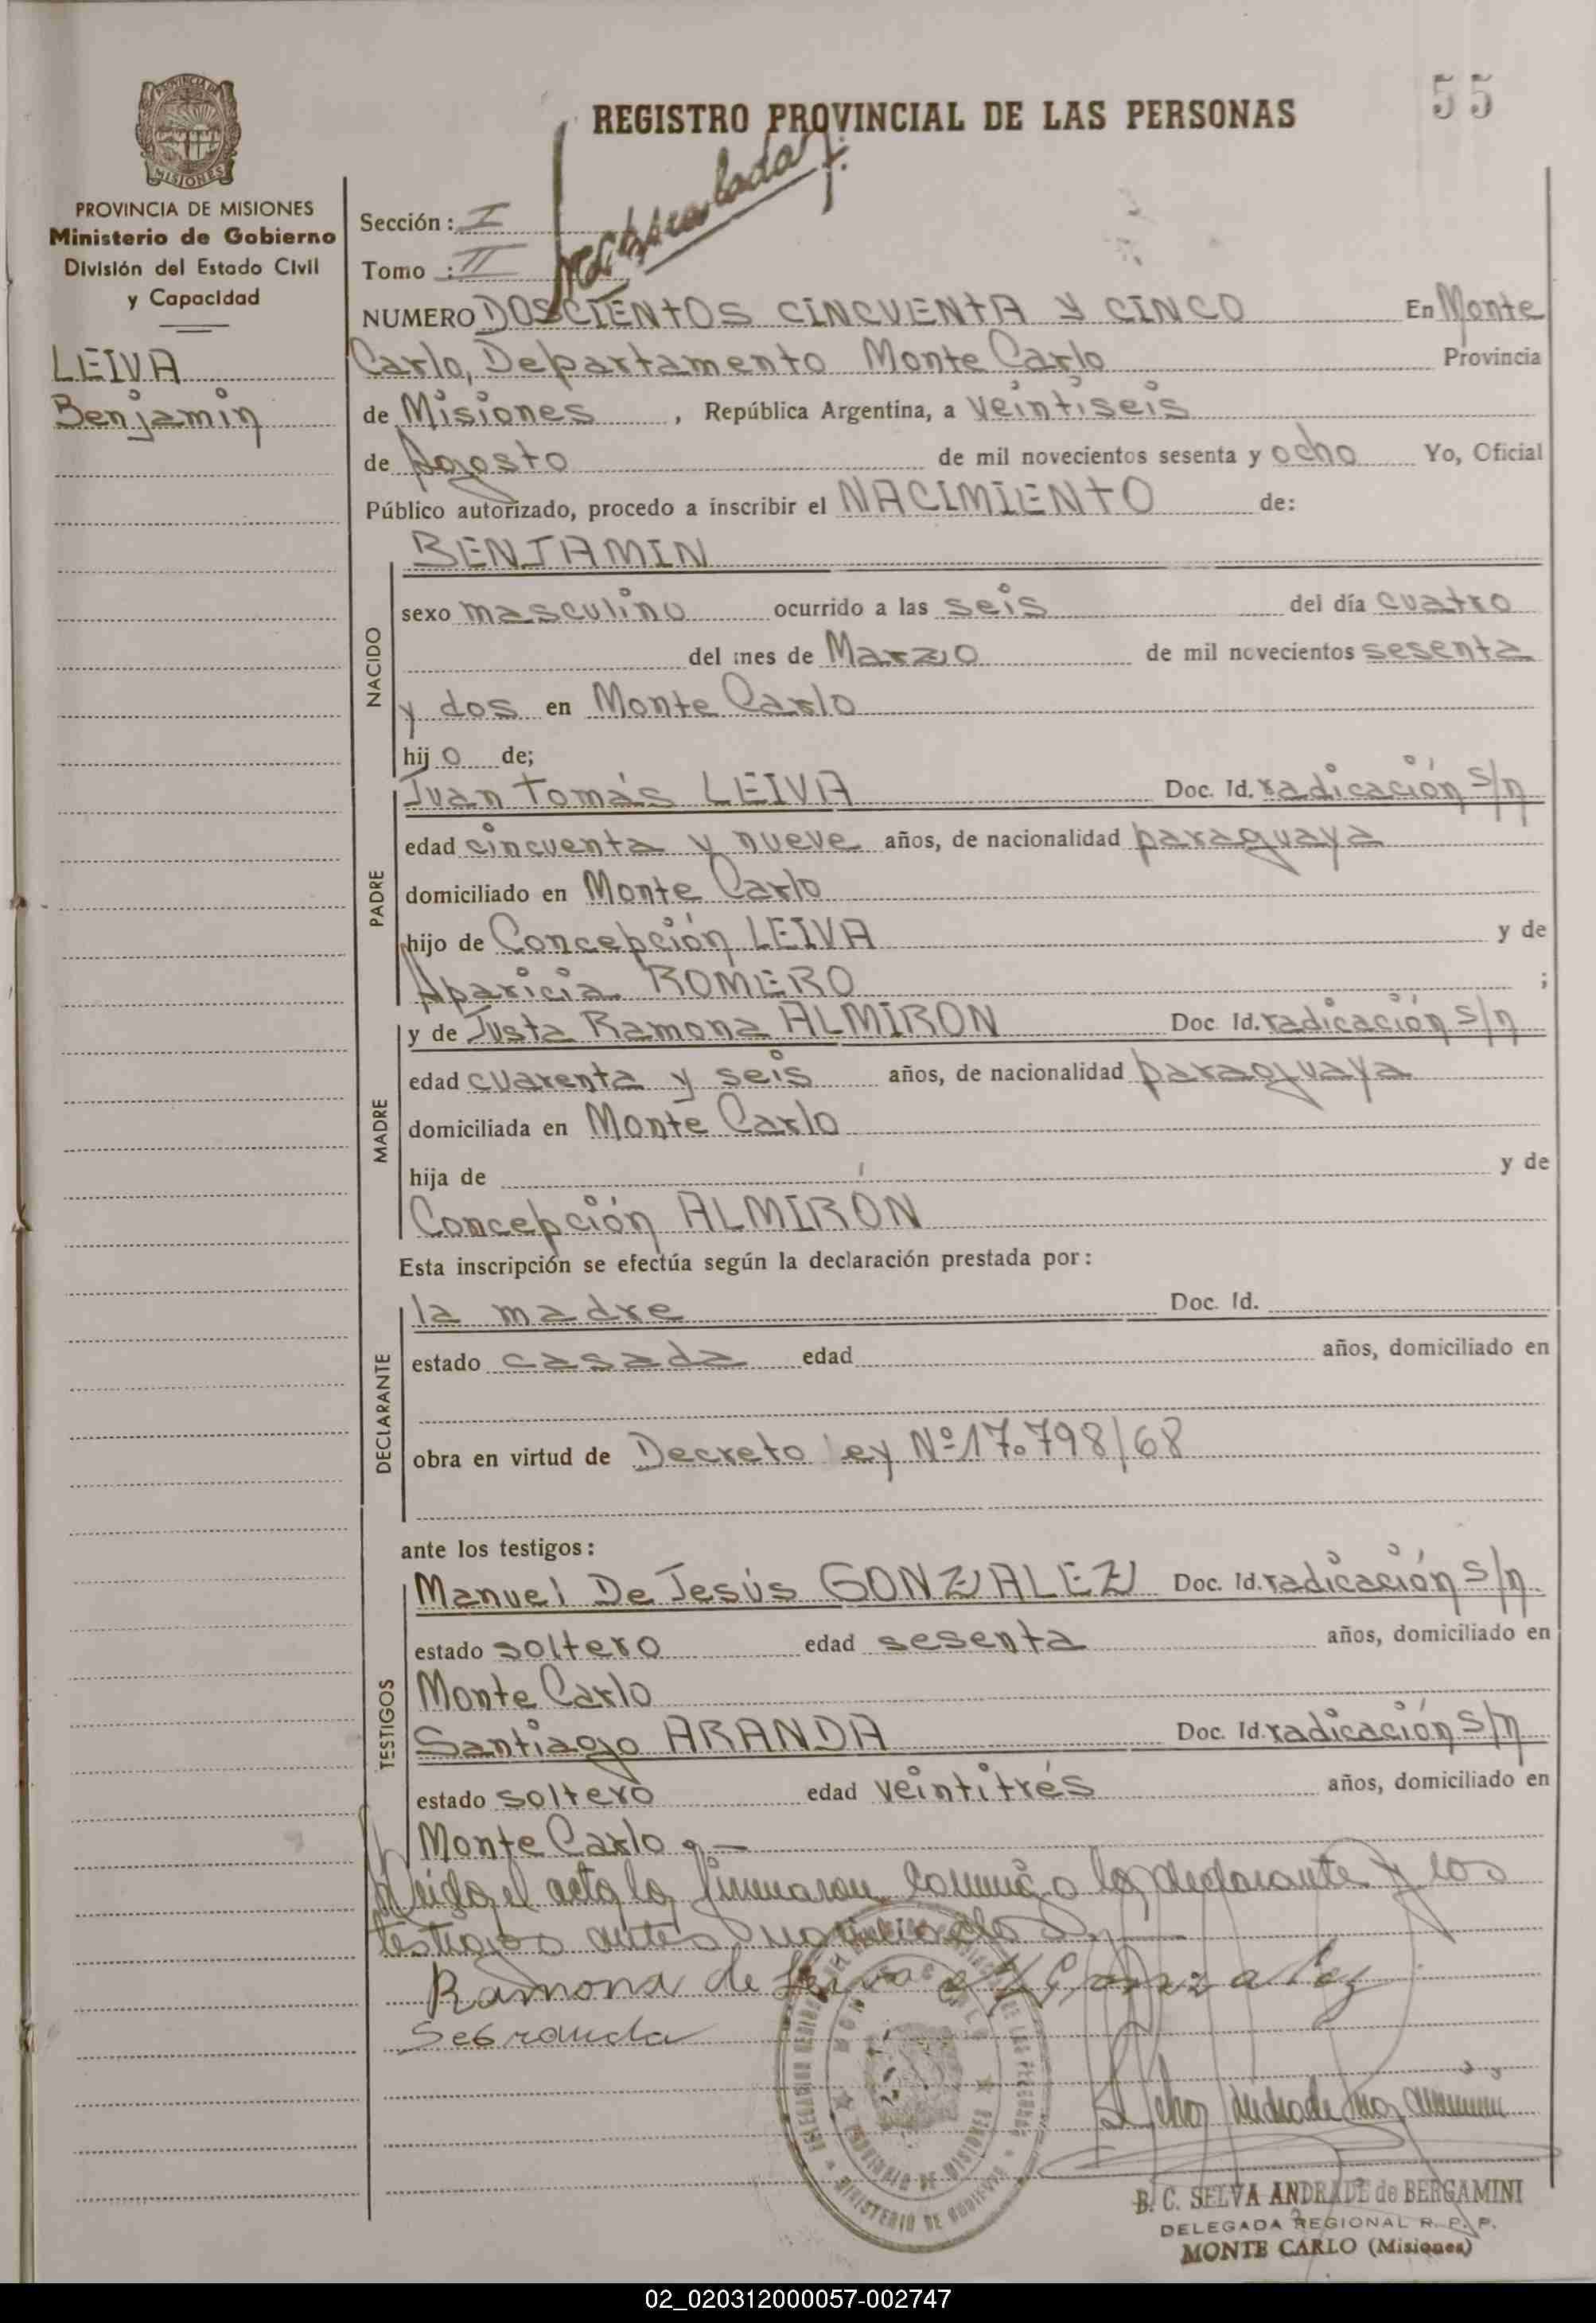 55
REGISTRO PROVINCIAL DE LAS PERSONAS
PROVINCIA DE MISIONES
Ministerio de Gobierno
División del Estado Civil
y Capacidad
LEIVA
Benjamín
Sección : I
Tomo : II
NUMERO DOSCIENTOS CINCUENTA Y CINCO En Monte
Carlo, Departamento Monte Carlo Provincia
de Misiones , República Argentina, a veintiseis
de Agosto de mil novecientos sesenta y ocho Yo, Oficial
Público autorizado, procedo a inscribir el NACIMIENTO de:
NACIDO
BENJAMIN
sexo masculino ocurrido a las seis del día cuatro
del mes de Marzo de mil novecientos sesenta
y dos en Monte Carlo
hij o de;
PADRE
Juan Tomás LEIVA Doc. Id. radicación s/n
edad cincuenta y nueve años, de nacionalidad paraguaya
domiciliado en Monte Carlo
hijo de Concepción LEIVA y de
Aparicia ROMERO ;
MADRE
y de Justa Ramona ALMIRON Doc. Id. radicación s/n
edad cuarenta y seis años, de nacionalidad paraguaya
domiciliada en Monte Carlo
hija de y de
Concepción ALMIRÓN
Esta inscripción se efectúa según la declaración prestada por :
DECLARANTE
la madre Doc. Id.
estado casada edad años, domiciliado en
obra en virtud de Decreto Ley Nº 17.798/68
ante los testigos :
TESTIGOS
Manuel De Jesús GONZALEZ Doc. Id. radicación s/n
estado soltero edad sesenta años, domiciliado en
Monte Carlo
Santiago ARANDA Doc. Id. radicación s/n
estado soltero edad veintitrés años, domiciliado en
Monte Carlo.—
Leída el acta la firmaron conmigo la declarante y los
testigos antes
Ramona de Leiva Gonzalez
B. C. SELVA ANDRADE de BERGAMINI
DELEGADA REGIONAL R. P. P.
MONTE CARLO (Misiones)
PROVINCIA DE MISIONES
MINISTERIO DE GOBIERNO
02_020312000057-002747